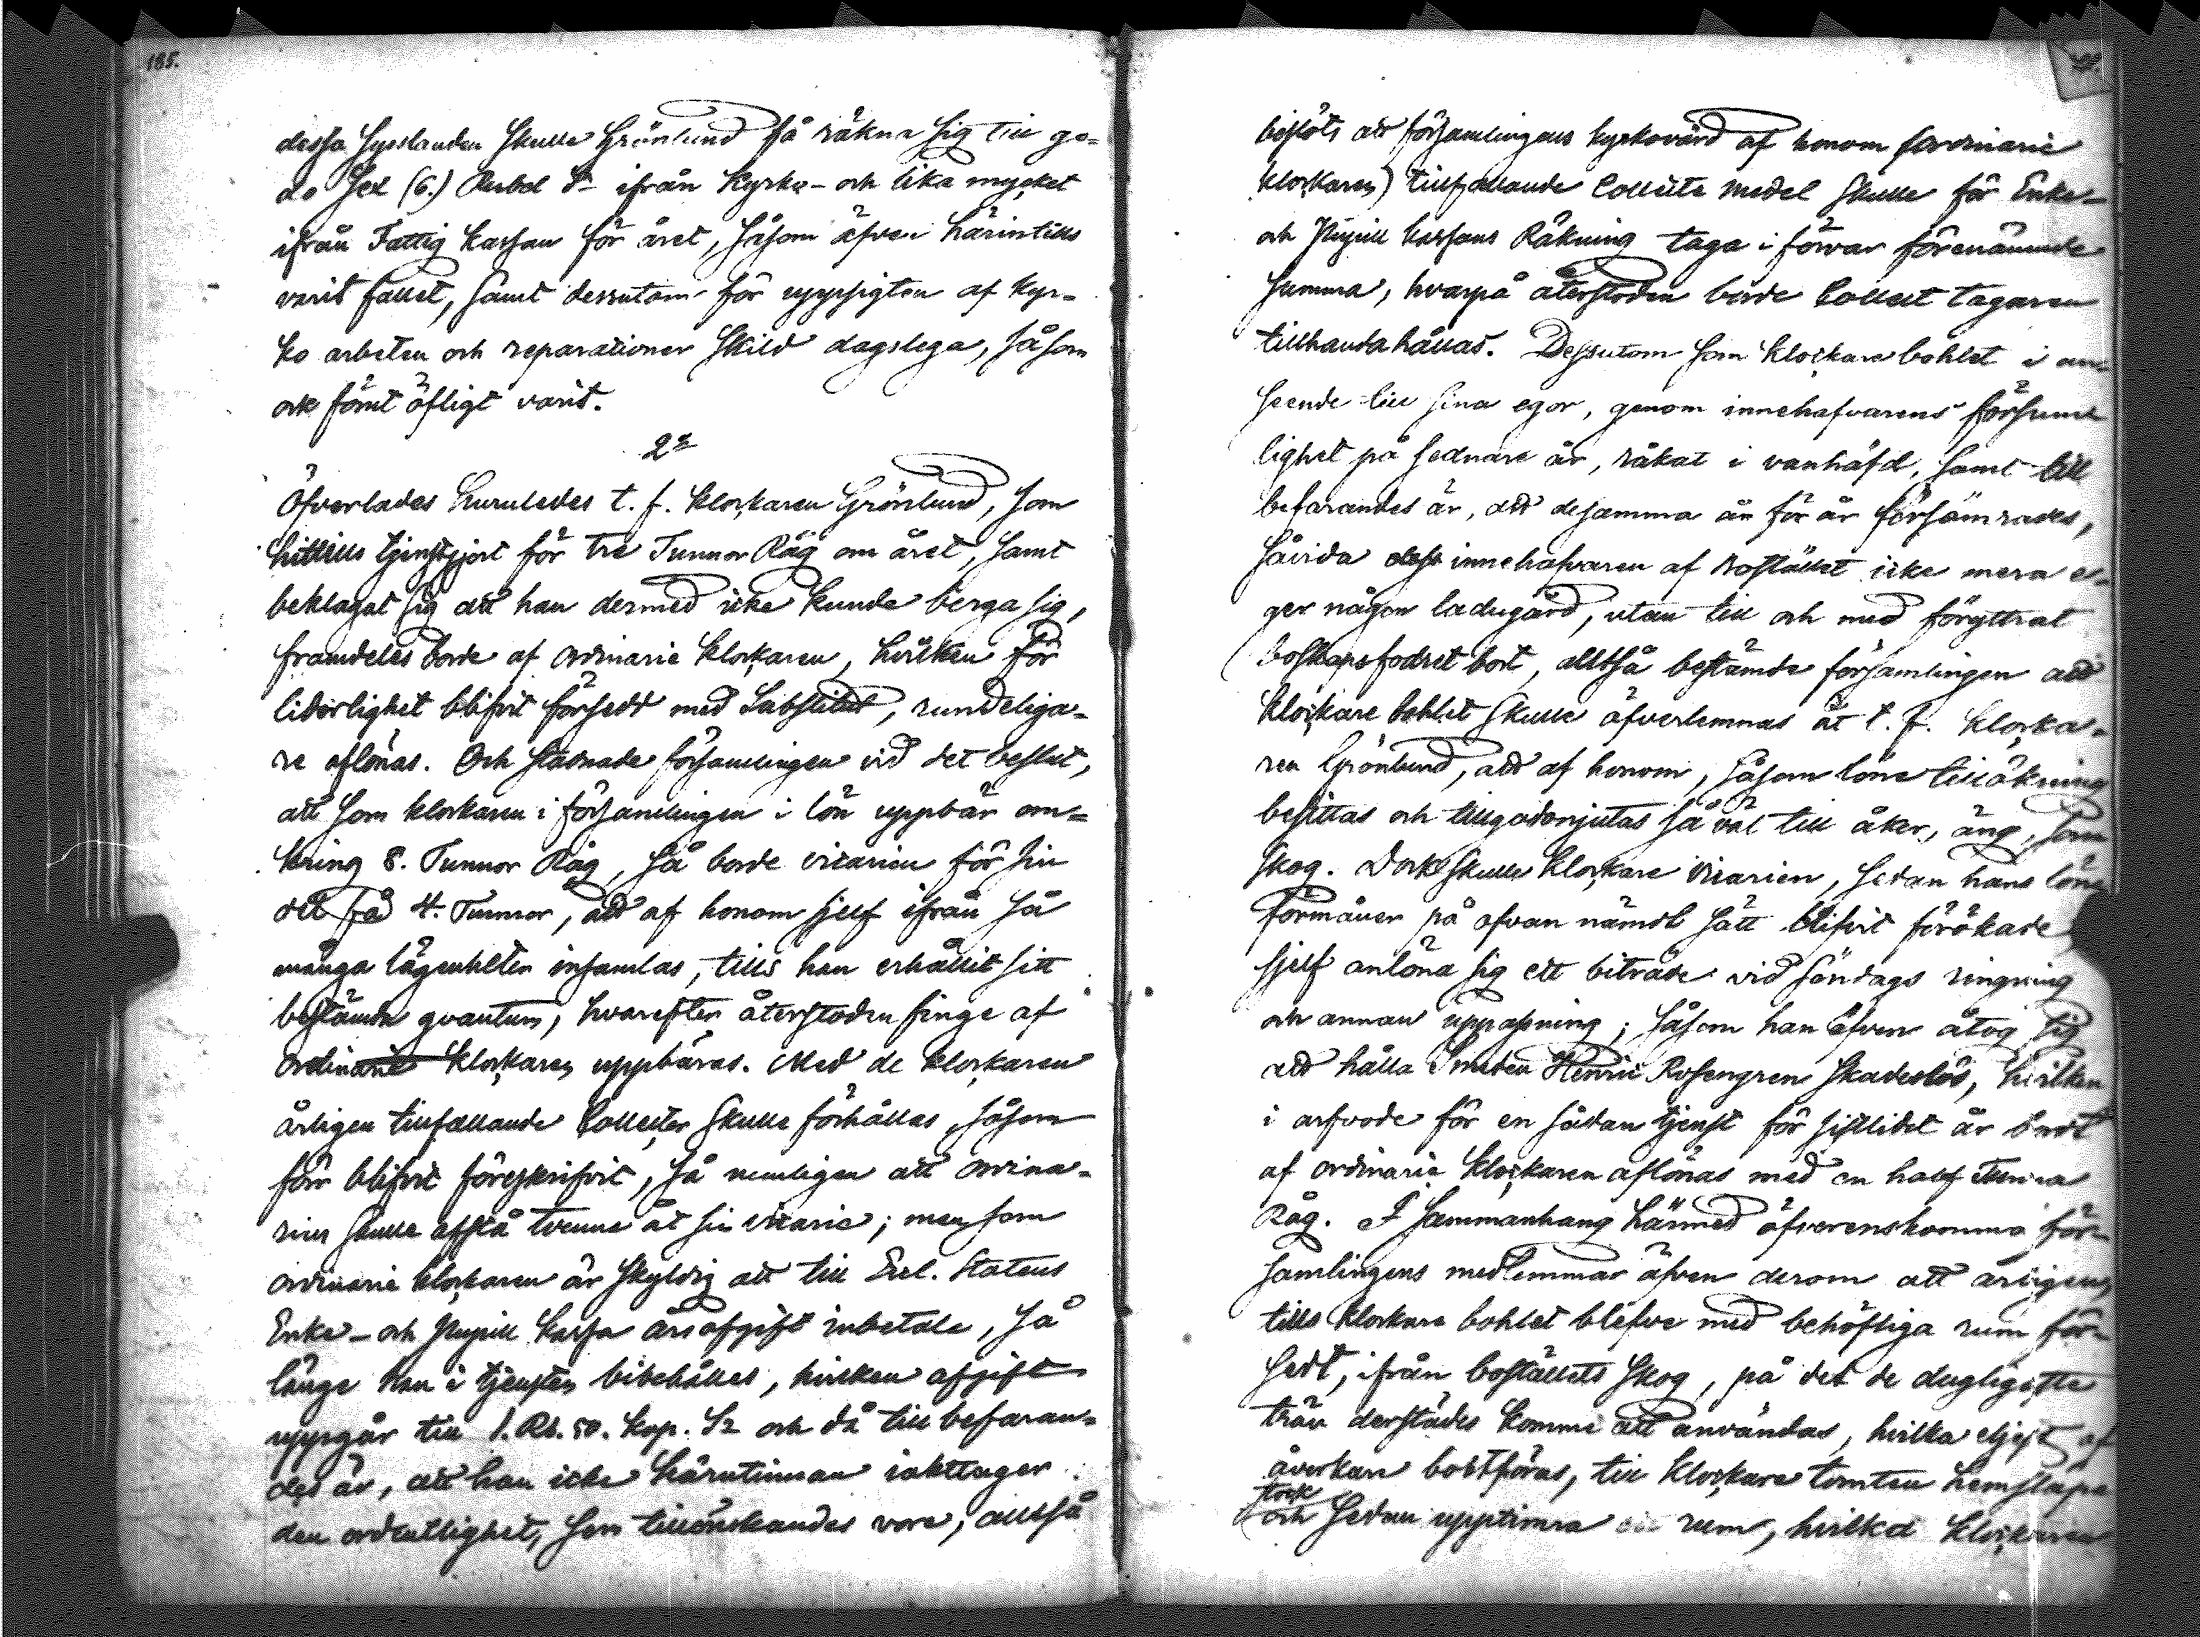 185.
dessa sysslanden skulle Grönlund få räkna sig till go=
do Sex (6.) Rubel S- ifrån Kyrko- och lika mycket
ifrån Fattig Kassan för året, såsom äfven härintills
varit fallet, samt dessutom för uppsigten af Kyr=
ko arbeten och reparationer skild dagslega, såsom
ock förut öfligt varit.
2º
Öfverlades huruledes t. f. Klockaren Grönlund, som
hittills tjenstgjort för tre Tunnor Råg om året, samt
beklagat sig att han dermed icke kunde berga sig,
framdeles borde af ordinarie Klockaren, hvilken för
liderlighet blifvit försedd med Substitut, rundeliga=
re aflönas. Och stadnade församlingen vid det beslut,
att som klockaren i församlingen i lön uppbär om=
kring 8. Tunnor Råg, så borde vicarien för sin
del få 4. Tunnor, att af honom sjelf ifrån så
många lägenheter insamlas, tills han erhållit sitt
bestämda qvantum, hvarefter återstoden finge af
Ordinarie Klockaren uppbäras. Med de klockaren
årligen tillfallande Collecter skulle förhållas, såsom
förr blifvit föreskrifvit, så nemligen att ordina=
rien skulle afstå tvenne åt sin vicarie; men som
ordinarie klockaren är skyldig att till Eccl. Statens
Enke- och Pupill Cassa årsafgift inbetala, så
länge han i tjensten bibehålles, hvilken afgift
uppgår till 1. Rb. 50. Kop. Sr och då till befaran=
des är, att han icke härutinnan iakttager
den ordentlighet, som tillönskandes vore, alltså
beslöts att församlingens kyrkovärd af honom (ordinarie
klockaren) tillfallande Collecte medel skulle för Enke-
och Pupill Cassans Räkning taga i förvar förenämnde
summa, hvarpå återstoden borde Collect tagaren
tillhandahållas. Dessutom som klockare bohlet i an=
seende till sina egor, genom innehafvarens försum
lighet på sednare år, råkat i vanhäfd, samt till
befarandes är, att desamma år för år försämrades,
såvida dess innehafvaren af bostället icke mera e=
ger någon ladugård, utan till och med föryttrat
boskapsfodret bort, alltså bestämde församlingen att
Klockare bohlet skulle öfverlemnas åt t. f. Klocka=
ren Grönlund, att af honom, såsom löne tillökning
besittas och tillgodonjutas så väl till åker, äng, som
skog. Dock skulle Klockare vicarien, sedan hans löne
förmåner på ofvan nämdt sätt blifvit förökade
sjelf anlöna sig ett biträde vid söndags ringning
och annan uppassning; såsom han äfven åtog sig
att hålla Smeden Henric Rosengren skadeslös, hvilken
i arfvode för en sådan tjenst för sistlidet år bordt
af ordinarie Klockaren aflönas med en half Tunna
Råg. I sammanhang härmed öfverenskommo för=
samlingens medlemmar äfven derom att årligen,
tills klockare bohlet blefve med behöfliga rum för=
sedt, ifrån boställets skog, på det de dugligaste
trän derstädes komme att användas, hvilka eljest af
åverkare bortföras, till Klockare tomten hemsläpa
stock
och sedan upptimra rum, hvilka Klockaren